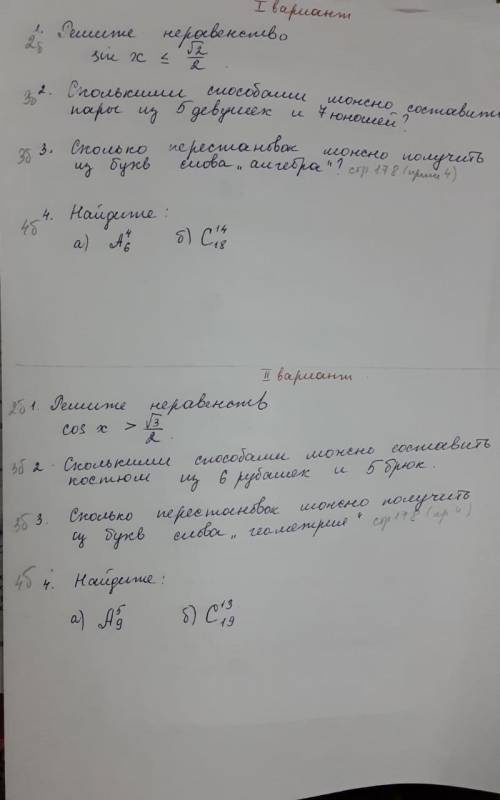 I вариант
2б 1. Решите неравенство
sin x ≤ √2/2.
3б 2. Сколькими способами можно составить
пары из 5 девушек и 7 юношей?
3б 3. Сколько перестановок можно получить
из букв слова „алгебра“? стр 178 (прим 4)
4б 4. Найдите:
а) A₆⁴ б) C₁₈¹⁴
II вариант
2б 1. Решите неравенств
cos x > √3/2.
3б 2. Сколькими способами можно составить
костюм из 6 рубашек и 5 брюк.
3б 3. Сколько перестановок можно получить
из букв слова „геометрия“ стр 178 (пр 4)
4б 4. Найдите:
а) A₉⁵ б) C₁₉¹³